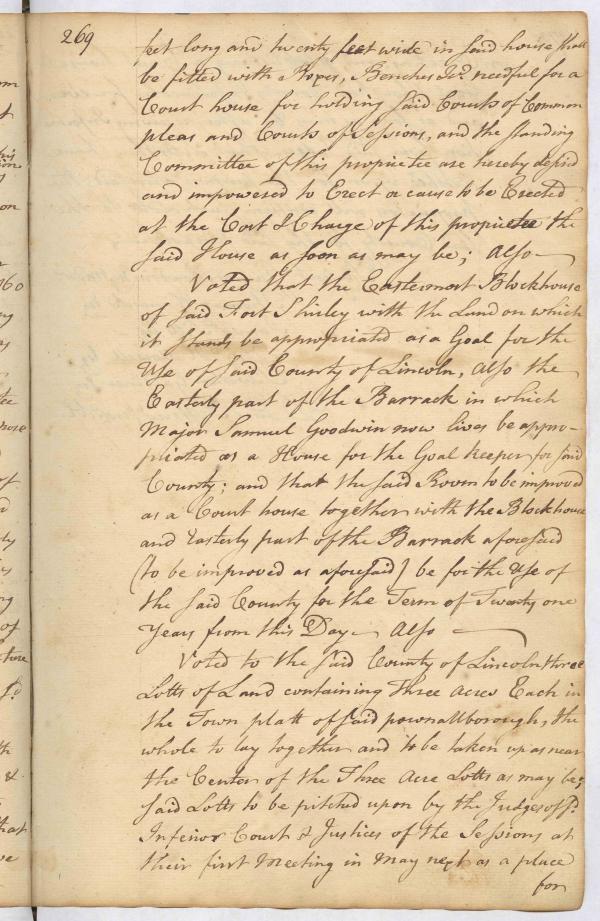 269
feet long and twenty feet wide in said house shall
be fitted with Boxes, Benches &c. needful for a
Court house for holding said Courts of Common
pleas and Courts of Sessions, and the standing
Committee of this proprietee are hereby desird
and impowered to Erect or cause to be Erected
at the Cost & Charge of this proprietee the
said House as soon as may be; Also
Voted that the Eastermost Blockhouse
of said Fort Shirley with the Land on which
it stands be appropriated as a Goal for the
Use of said County of Lincoln, Also the
Easterly part of the Barrack in which
Major Samuel Goodwin now lives be appro-
priated as a House for the Goal Keeper for said
County; and that the said Room to be improved
as a Court house together with the Blockhouse
and Easterly part of the Barrack aforesaid
(to be improved as aforesaid) be for the Use of
the said County for the Term of Twenty one
Years from this Day Also
Voted to the said County of Lincoln three
Lotts of Land containing Three Acres Each in
the Town platt of said pownallborough, the
whole to lay together and to be taken up as near
the Center of the Three Acre Lotts as may be;
said Lotts to be pitched upon by the Judges of sd.
Inferior Court & Justices of the Sessions at
their first Meeting in May next as a place
for